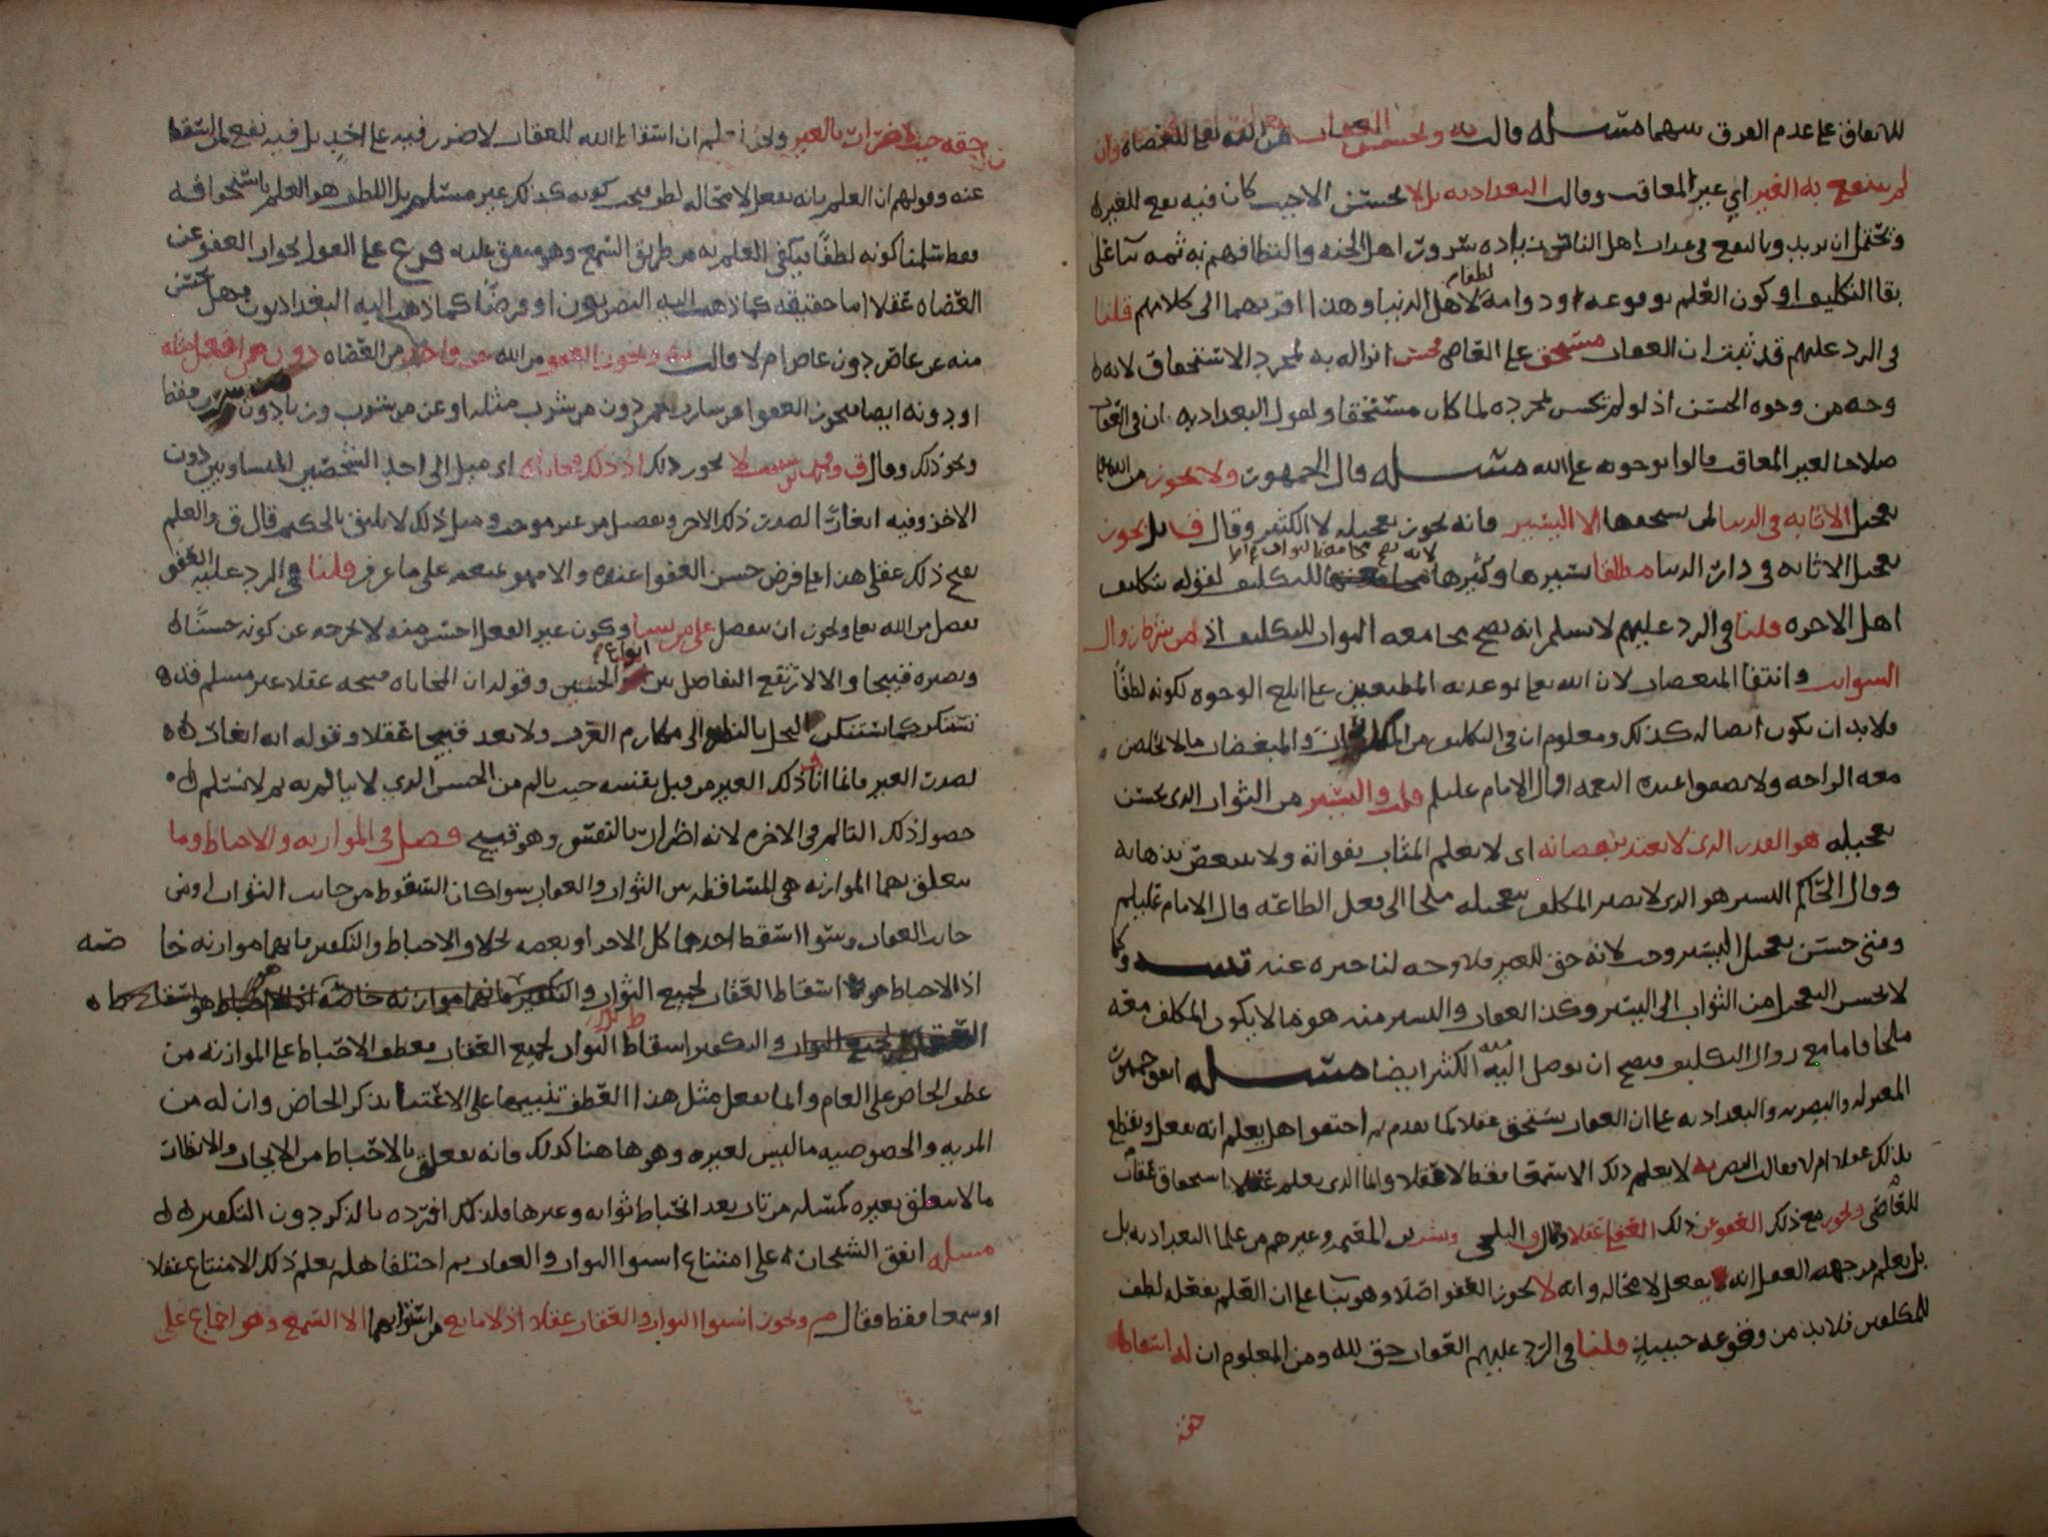 للاتفاق على عدم الفرق بينهما مسئله قالت يه ويحسن العقاب من الله تعالى للعصاه وان
لم ينتفع به الغير اي غير المعاقب وقالت البغداديه بل لا يحسن الا حيث كان فيه نفع للغير
ويحتمل ان يريدوا بالنفع في عذاب اهل النار زياده سرور اهل الجنه والتطافهم به ثمه بنا على
بقا التكليف او كون العلم بوقوعه ودوامه لطفا لاهل الدنيا وهذا اقربهما الى كلامهم قلنا
في الرد عليهم قد ثبت ان العقاب مستحق على العاصي فحسن انزاله به لمجرد الاستحقاق لانه
وجه من وجوه الحسن اذ لو لم يحسن لمجرده لما كان مستحقا ولقول البغداديه ان في العقاب
صلاحا لغير المعاقب قالوا بوجوبه على الله مسئله قال الجمهور ولا يجوز من الله تعالى
تعجيل الاثابه في الدنيا لمن يستحقها الا اليسير فانه يجوز تعجيله لا الكثير وقال ق بل يجوز
تعجيل الاثابه في دار الدنيا مطلقا يسيرها وكثيرها لانه يصح مجامعة الثواب للتكليف لقوله بتكليف
اهل الاخره قلنا في الرد عليهم لا نسلم انه يصح مجامعه الثواب للتكليف اذ من شرطه زوال
الشوايب وانتفا المنغصات لان الله تعالى توعد به المطيعين على ابلغ الوجوه لكونه لطفا
فلا بد ان يكون ايصاله كذلك ومعلوم ان في التكليف من والمبغضات ما لا يخلص
معه الراحه ولا يصفوا عنده النعمه قال الامام عليلم قلت واليسير من الثواب الذي يحسن
تعجيله هو القدر الذي لا يعتد بنقصانه اي لا يعلم المثاب بفواته ولا يتنغص بذهابه
وقال الحاكم اليسير هو الذي لا يصير المكلف بتعجيله ملجا الى فعل الطاعه قال الامام عليلم
ومتى حسن تعجيل اليسير وجب لانه حق للغير فلا وجه لتاخيره عنه تنبيه وكما
لا يحسن التعجيل من الثواب الى اليسير وكذا العقاب واليسير منه هو ما لا يكون المكلف معه
ملجا فاما مع زوال التكليف فيصح ان يوصل اليه منه الكثير ايضا مسئله اتفق جمهور
المعتزله والبصريه والبغداديه على ان العقاب يستحق عقلا كما تقدم ثم اختلفوا هل يعلم انه يفعل ويقطع
بذلك عقلا ام لا فقالت البصريه لا يعلم ذلك الا سمعا فقط لا عقلا وانما الذي يعلم عقلا استحقاق عقاب
للعاصي ويجوز مع ذلك العفو عن ذلك العقاب عقلا وقال البلخي وبشر بن المعتمر وغيرهم من علما البغداديه بل
بل يعلم من جهه العقل انه يفعل لا محاله وانه لا يجوز العفو اصلا وهو بنا على ان العلم بفعله لطف
للمكلفين فلا بد من وقوعه حينئذ قلنا في الرد عليهم العقاب حق لله ومن المعلوم ان له اسقاط
حقه
حقه حيث لا ضرار بالغير ونحن نعلم ان اسقاط الله للعقاب لا ضرر فيه على احد بل فيه نفع لمن اسقط
عنه وقولهم ان العلم بانه يفعل لا محاله لطف فيجب كونه كذلك غير مسلم بل اللطف هو العلم باستحقاقه
فقط سلمنا كونه لطفا فيكفي العلم به من طريق السمع وهو متفق عليه فرع على القول بجواز العفو عن
العصاه عقلا اما حقيقه كما ذهب اليه البصريون او فرضا كما ذهب اليه البغداديون فهل يحسن
منه عن عاص دون عاص ام لا قالت يه ويجوز العفو من الله عن واحد من العصاه دون من فعل مثله
او دونه ايضا فيجوز العفو عن سارق خمر دون من شرب مثله او عن من شرب وزنا دون من شرب فقط
ونحو ذلك وقال ق لا يجوز ذلك اذ ذلك محاباه اي ميل الى احد الشخصين المتساويين دون
الاخر وفيه ايغار الصدر ذلك الاخر وتفضيل من غير موجب ومثل ذلك لا يليق بالحكيم قال ق والعلم
بقبح ذلك عقلي هذا على فرض حسن العفو عنده والا فهو يمنعه على ما عرف قلنا في الرد عليه العفو
تفضل من الله تعالى ويجوز ان يتفضل على من يشا وكون غير الفعل احسن منه لا يخرجه عن كونه حسنا
ويصيره قبيحا والا لارتفع التفاضل بين انواع الحسن وقوله ان المحاباه قبيحه عقلا غير مسلم قد
تستنكر كما يستنكر البخل بالنظر الى مكارم العرف ولا يعد قبيحا عقلا وقوله انه ايغار
لصدر الغير فانما اتا ذلك الغير من قبل نفسه حيث تالم من الحسن الذي لا يتالم به ثم لا نسلم
حصول ذلك التالم في الاخره لانه اضرار بالنفس وهو قبيح فصل في الموازنه والاحباط وما
يتعلق بهما الموازنه هي المساقطه بين الثواب والعقاب سوا كان السقوط من جانب الثواب او من
جانب العقاب وسوا اسقط احدهما كل الاخر او بعضه بخلاف الاحباط والتكفير فانهما موازنه خا صه
اذ الاحباط هو اسقاط العقاب لجميع الثواب
والتكفير اسقاط الثواب لجميع العقاب فعطف الاحباط على الموازنه من
عطف الخاص على العام وانما يفعل مثل هذا العطف تنبيها على الاعتنا بذكر الخاص وان له من
المزيه والخصوصيه ما ليس لغيره وهو هاهنا كذلك فانه يتعلق بالاحباط من الابحاث والانظار
ما لا يتعلق بغيره كمسئله من تاب بعد احباط ثوابه وغيرها فلذلك افرده بالذكر دون التكفير
مسئله اتفق الشيخان على امتناع استوا الثواب والعقاب ثم اختلفا هل يعلم ذلك الامتناع عقلا
او سمعا فقط فقال م ويجوز استوا الثواب والعقاب عقلا اذ لا مانع من استوائهما الا السمع وهو اجماع على